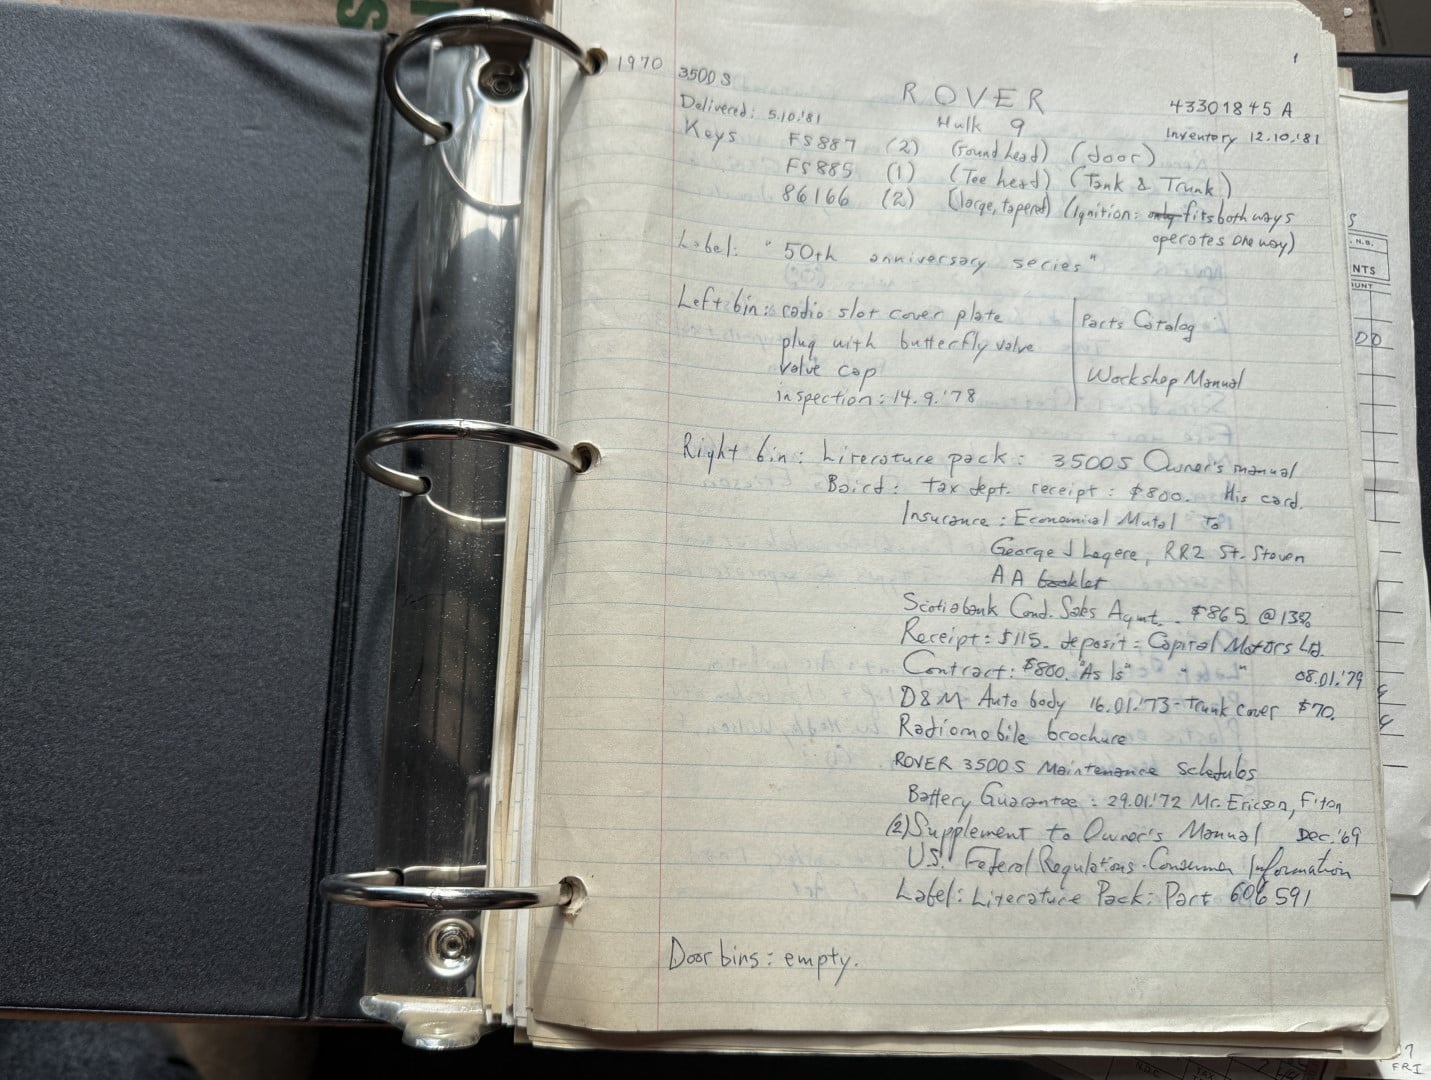 1
1970 3500 S ROVER 43301845 A
Delivered: 5.10.'81 Hulk 9 Inventory 12.10.'81
Keys FS887 (2) (round head) (door)
FS885 (1) (Tee head) (Tank & Trunk)
86166 (2) (large, tapered) (Ignition: only fits both ways
operates one way)
Label: "50th anniversary series"
Left bin: radio slot cover plate
plug with butterfly valve
valve cap
inspection: 14.9.'78
Parts Catalog
Workshop Manual
Right bin: Literature pack: 3500S Owner's manual
Baird: tax dept. receipt: $800. His card.
Insurance: Economical Mutal To
George J Lagere, RR2 St. Steven
AA booklet
Scotiabank Cond. Sales Agmt. - $865 @ 13%
Receipt: $115. deposit = Capital Motors Ltd.
Contract: $800. "As Is" " " 08.01.'79
D&M Auto body 16.01.'73 - Trunk cover $70.
Radiomobile brochure
ROVER 3500 S Maintenance Schedules
Battery Guarantee: 29.01.'72 Mr. Ericson, F'ton
(2) Supplement to Owner's Manual Dec. '69
U.S. Federal Regulations - Consumer Information
Label: Literature Pack: Part 606591
Door bins: empty.
S
N.B.
NTS
OUNT
DO
7
FRI